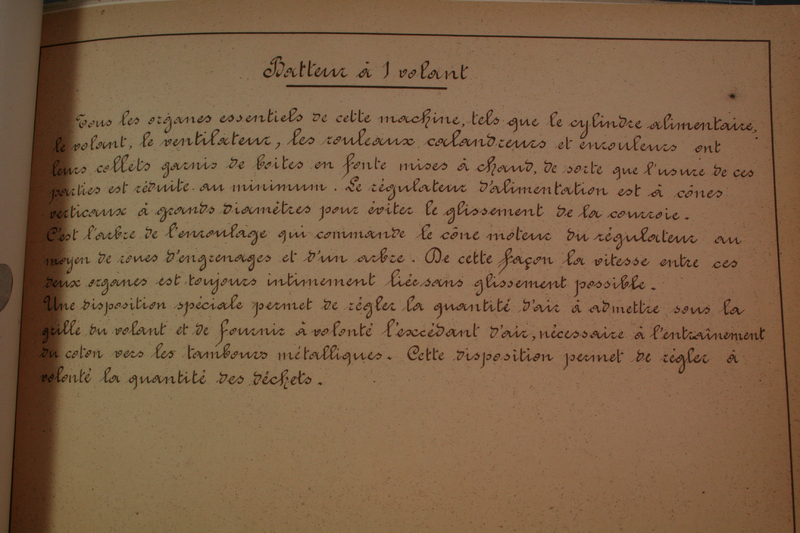 Batteur à 1 volant
Tous les organes essentiels de cette machine, tels que le cylindre alimentaire,
le volant, le ventilateur, les rouleaux calandreurs et enrouleurs ont
leurs collets garnis de boites en fonte mises à chaud, de sorte que l'usure de ces
parties est réduite au minimum. Le régulateur d'alimentation est à cônes
verticaux à grands diamètres pour éviter le glissement de la courroie.
C'est l'arbre de l'enroulage qui commande le cône moteur du régulateur au
moyen de roues d'engrenages et d'un arbre. De cette façon la vitesse entre ces
deux organes est toujours intimement liée sans glissement possible.
Une disposition spéciale permet de régler la quantité d'air à admettre sous la
grille du volant et de fournir à volonté l'excédant d'air, nécessaire à l'entraînement
du coton vers les tambours métalliques. Cette disposition permet de régler à
volonté la quantité des déchets.